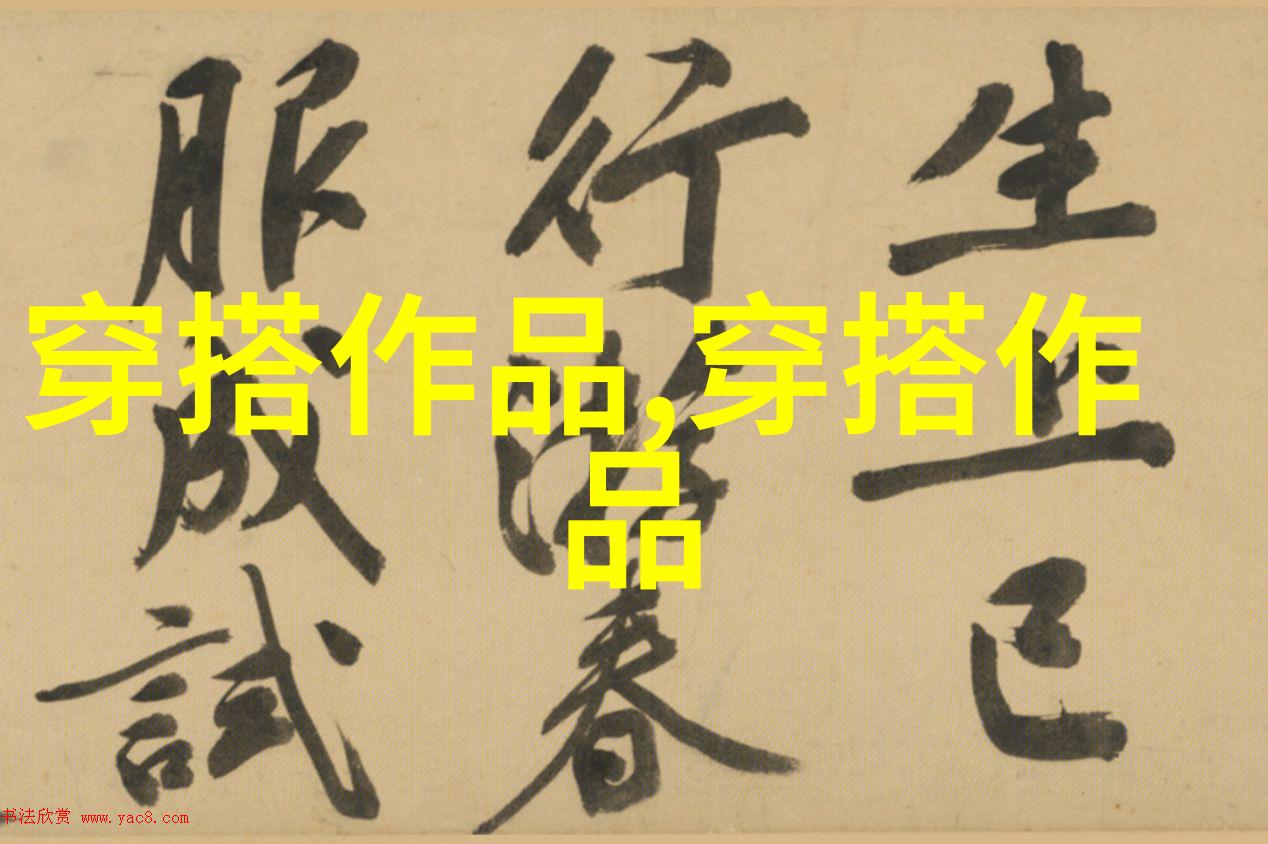 生上巳
行春
服成試
穿搭作品,穿搭作
品
书法欣赏 www.yac8.com